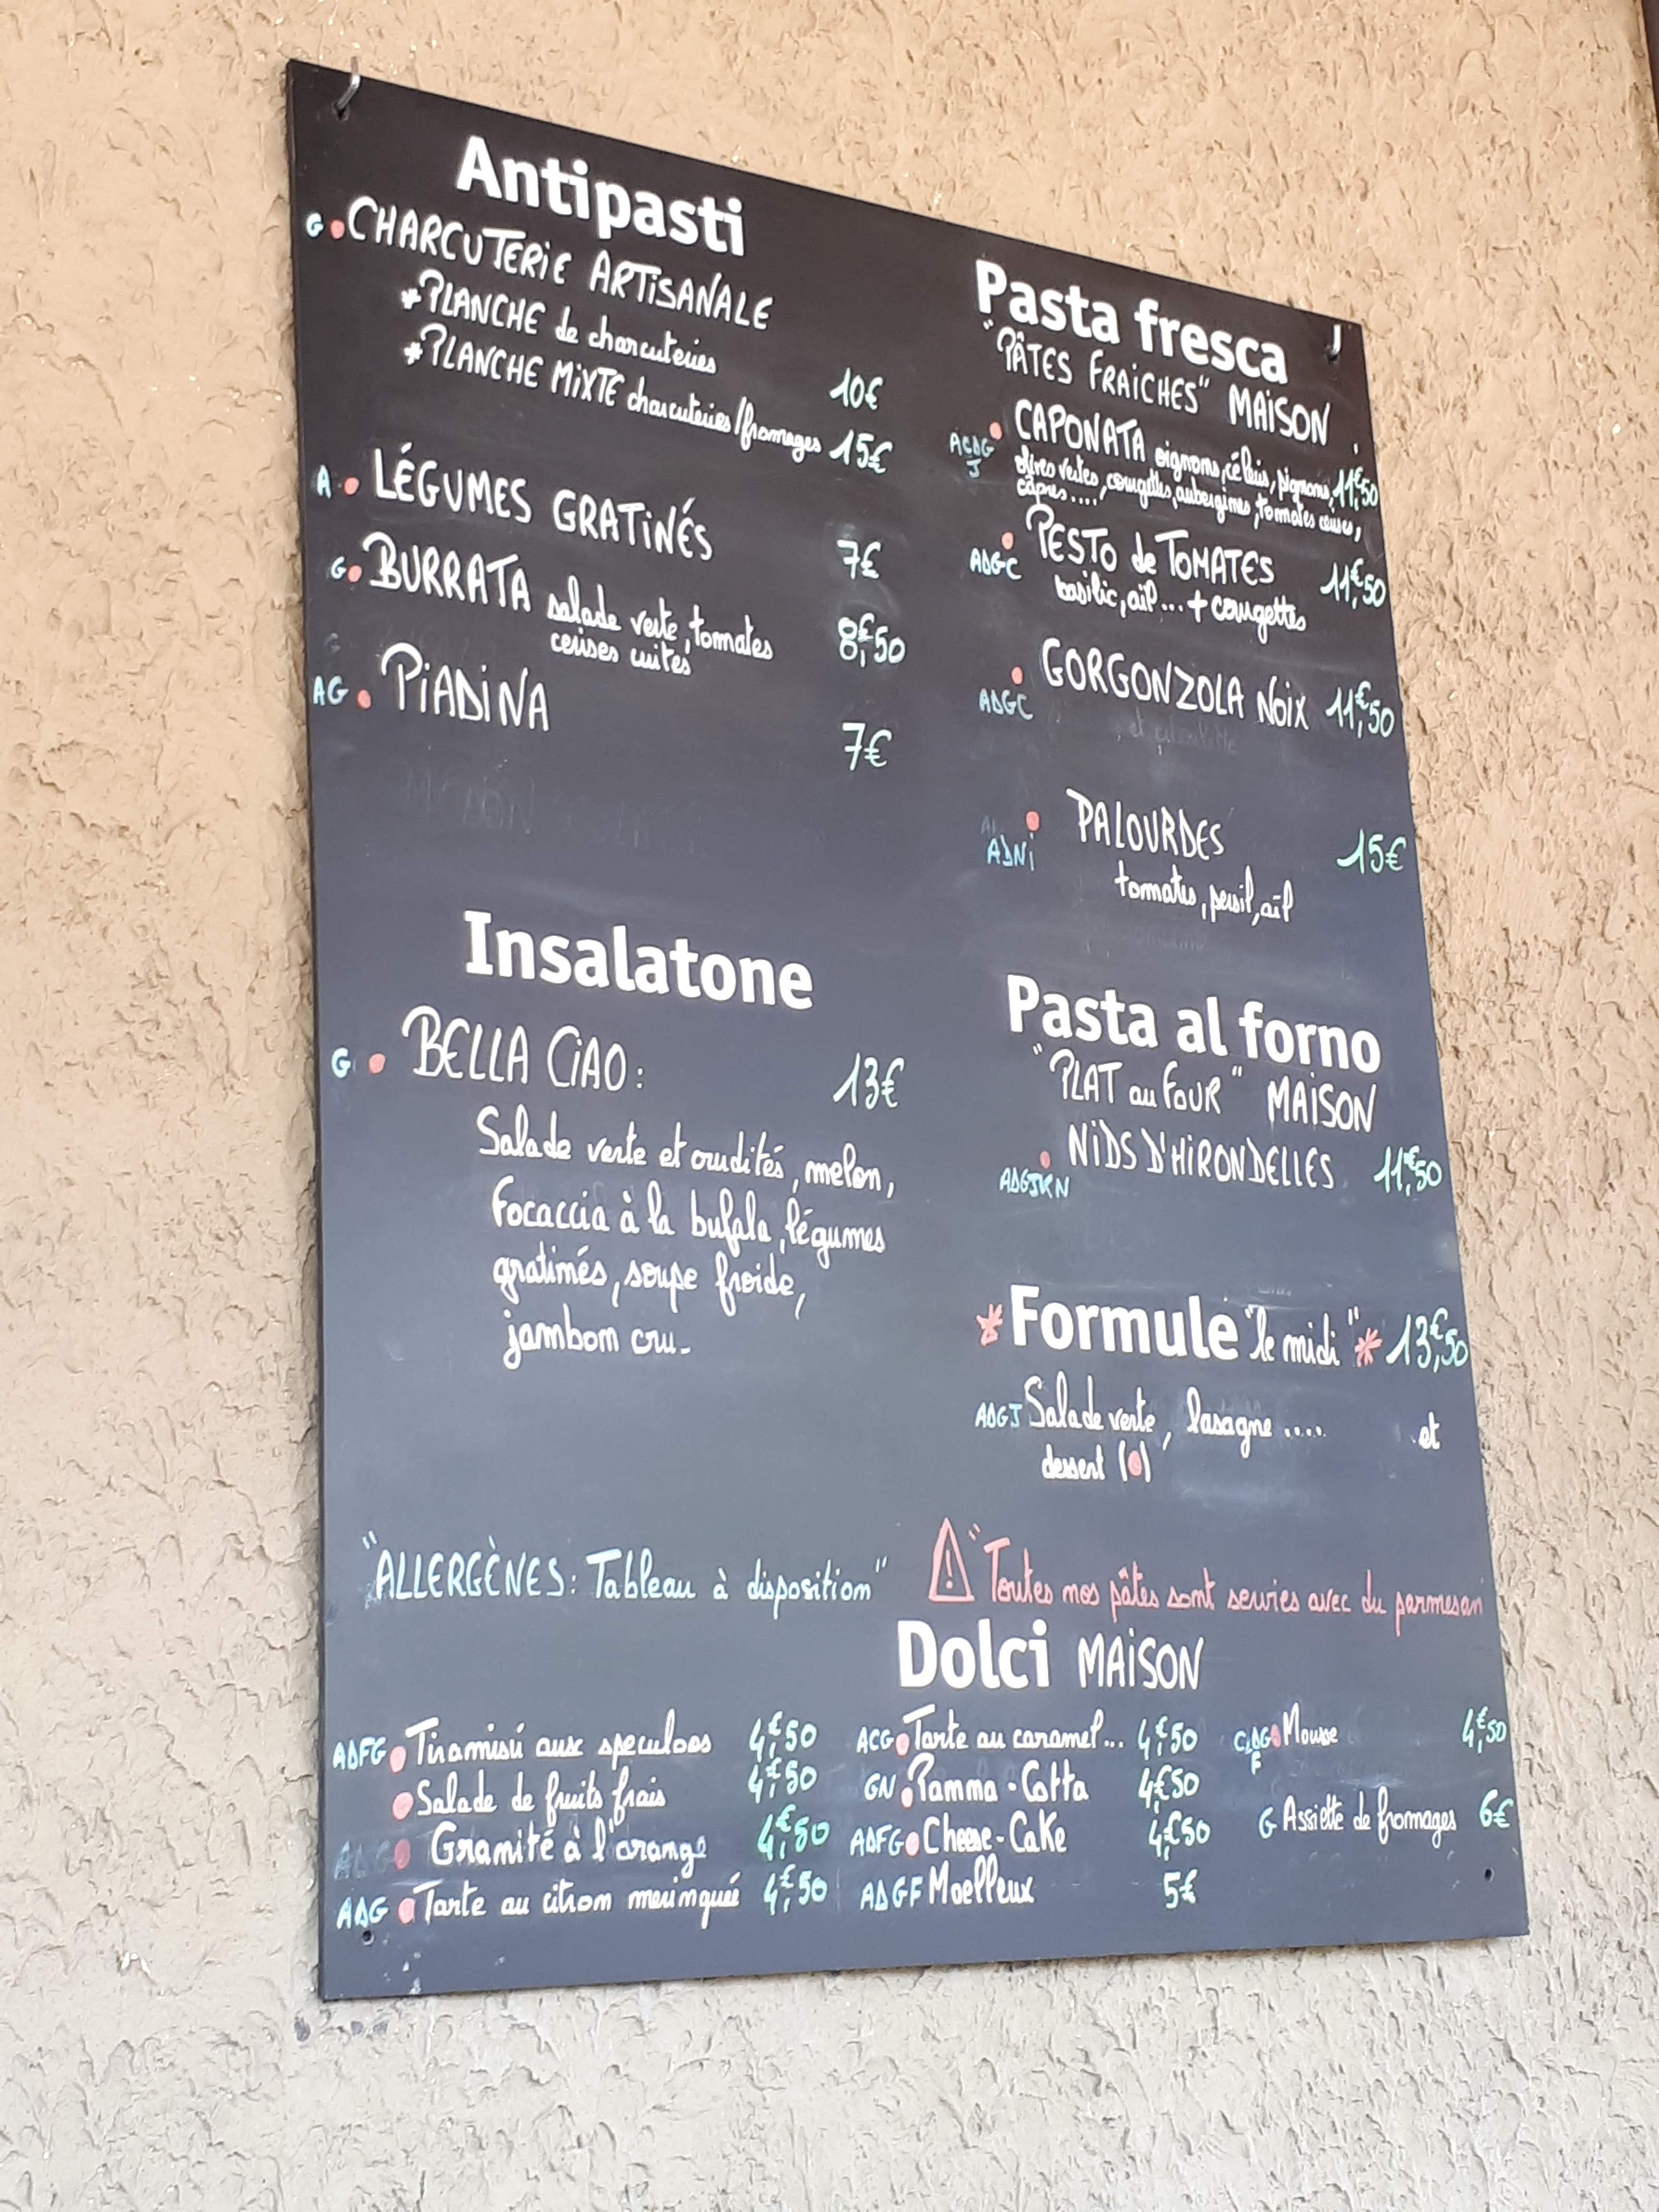 Antipasti
G • CHARCUTERIE ARTISANALE
* PLANCHE de charcuteries 10€
* PLANCHE MIXTE charcuteries/fromages 15€
A • LÉGUMES GRATINÉS 7€
G • BURRATA salade verte, tomates 8€,50
cerises cuites
AG • PIADINA 7€
Insalatone
G • BELLA CIAO: 13€
Salade verte et crudités, melon,
Focaccia à la bufala, légumes
gratinés, soupe froide,
jambon cru.
"ALLERGÈNES: Tableau à disposition"
Pasta fresca
"PÂTES FRAICHES" MAISON
ACDG • CAPONATA oignons, céleris, pignons, 11€,50
J olives vertes, courgettes, aubergines, tomates cerises,
câpres....
ADGC • PESTO de TOMATES 11€,50
basilic, ail... + courgettes
ADGC • GORGONZOLA NOIX 11€,50
ADNi • PALOURDES 15€
tomates, persil, ail
Pasta al forno
"PLAT au FOUR" MAISON
ADGJKN • NIDS D'HIRONDELLES 11€,50
* Formule "le midi" * 13€,50
ADGJ Salade verte, lasagne ..... et
dessert (•)
⚠ "Toutes nos pâtes sont servies avec du parmesan
Dolci MAISON
ADFG • Tiramisú aux speculoos 4€,50
• Salade de fruits frais 4€,50
• Granité à l'orange 4€,50
ADG • Tarte au citron meringuée 4€,50
ACG • Tarte au caramel... 4€,50
GN • Panna-Cotta 4€50
ADFG • Cheese-Cake 4€50
ADGF Moelleux 5€
• Mousse 4€,50
F
G Assiette de fromages 6€